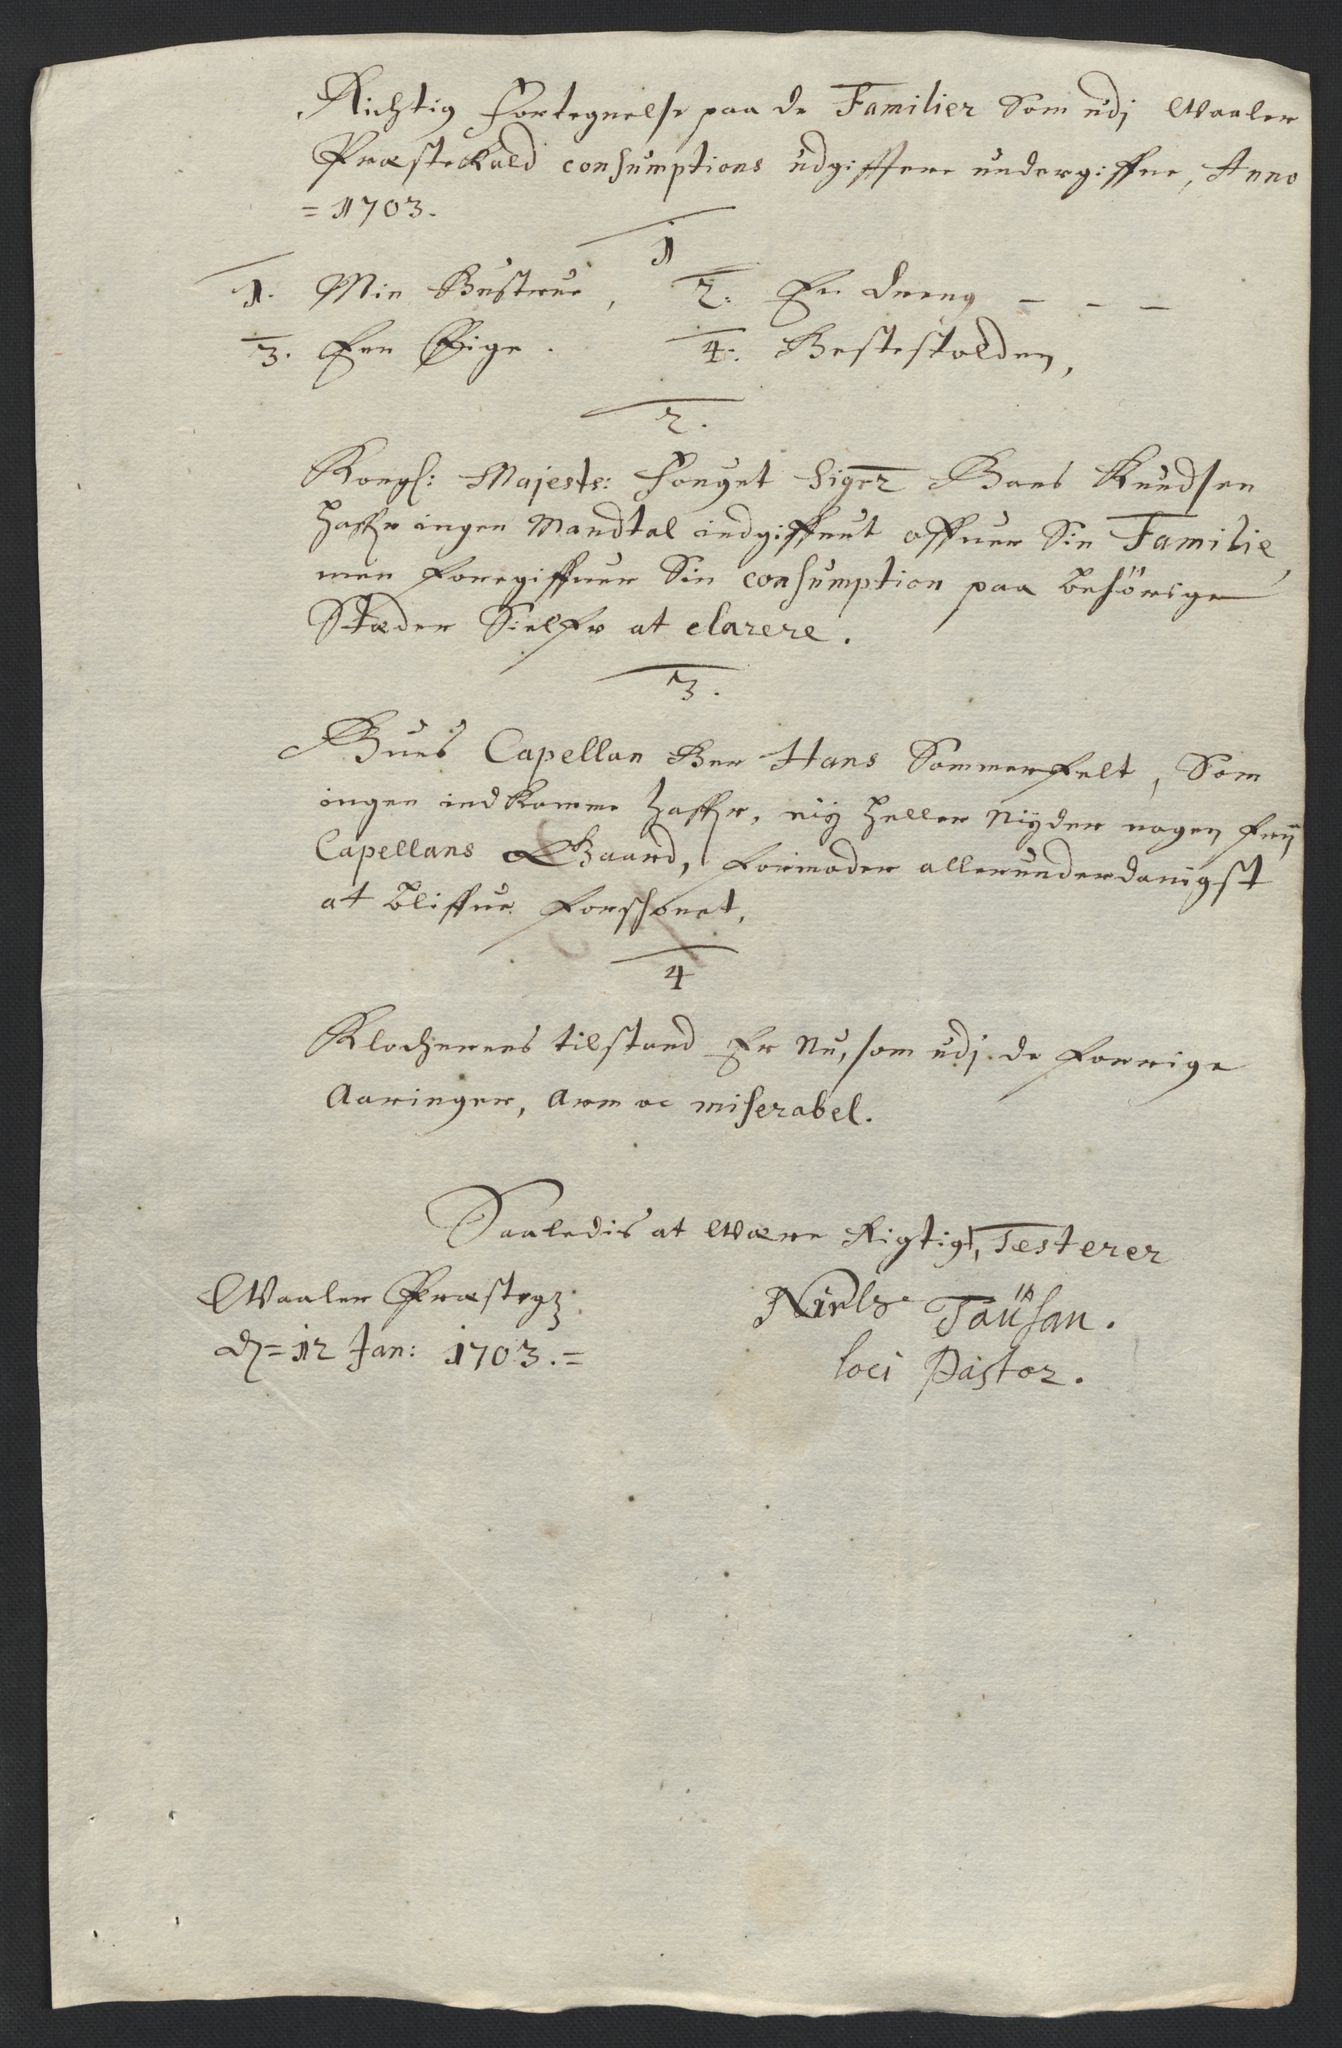 Richtig Fortegnelse paa de Familier Som udj Waaler
Præstekald consumptions udgifften undergiffne, Anno
= 1703.
1
1. Min Hustrue, 2: En dreng - - -
3. Een Pige. 4: Hestestolden,
2.
Kongl: Majests: Fouget Sigr Hans Knudsen
haffr ingen Mandtal indgiffuet offuer Sin Familie,
men foregiffuer Sin consumption paa behörige
Stæder Sielff at clarere.
3.
Huus Capellan Her Hans Sommerfelt, Som
ingen indkomme haffr, eij heller Nijder nogen frij
Capellans Gaard, formoder allerunderdanigst
at bliffue forschonet,
4
Klocherens tilstand Er Nu, som udj de forrige
Aaringer, arm oc miserabel.
Saaledis at Wære Rigtigt, Testerer
Waaler Præstegd.
d = 12 Jan: 1703. =
Niels Taüsan.
loci Pastor.